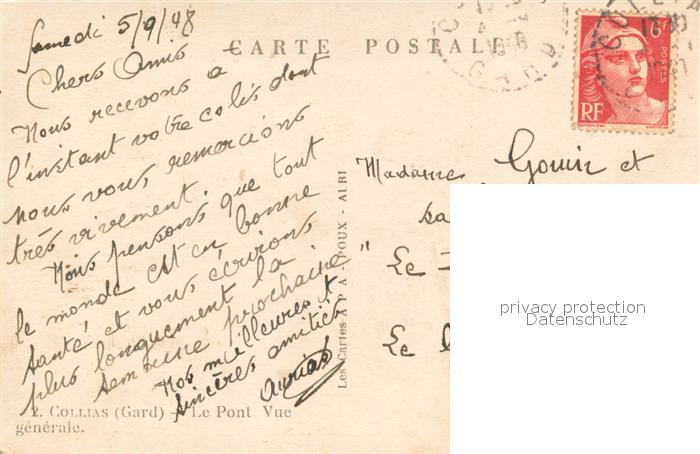 Samedi 5/9/48
CARTE POSTALE
Chers Amis
Nous recevons a
l'instant votre colis dont
nous vous remercions
très vivement.
Nous pensons que tout
le monde est en bonne
santé et vous écrivons
plus longuement la
semaine prochaine
Nos meilleures et
sincères amitiés
2. COLLIAS (Gard) - Le Pont Vue
générale.
Les Cartes APA-POUX - ALBI
6F
POSTES
RF
Madame Gouin et
sa
" Le
Le
privacy protection
Datenschutz